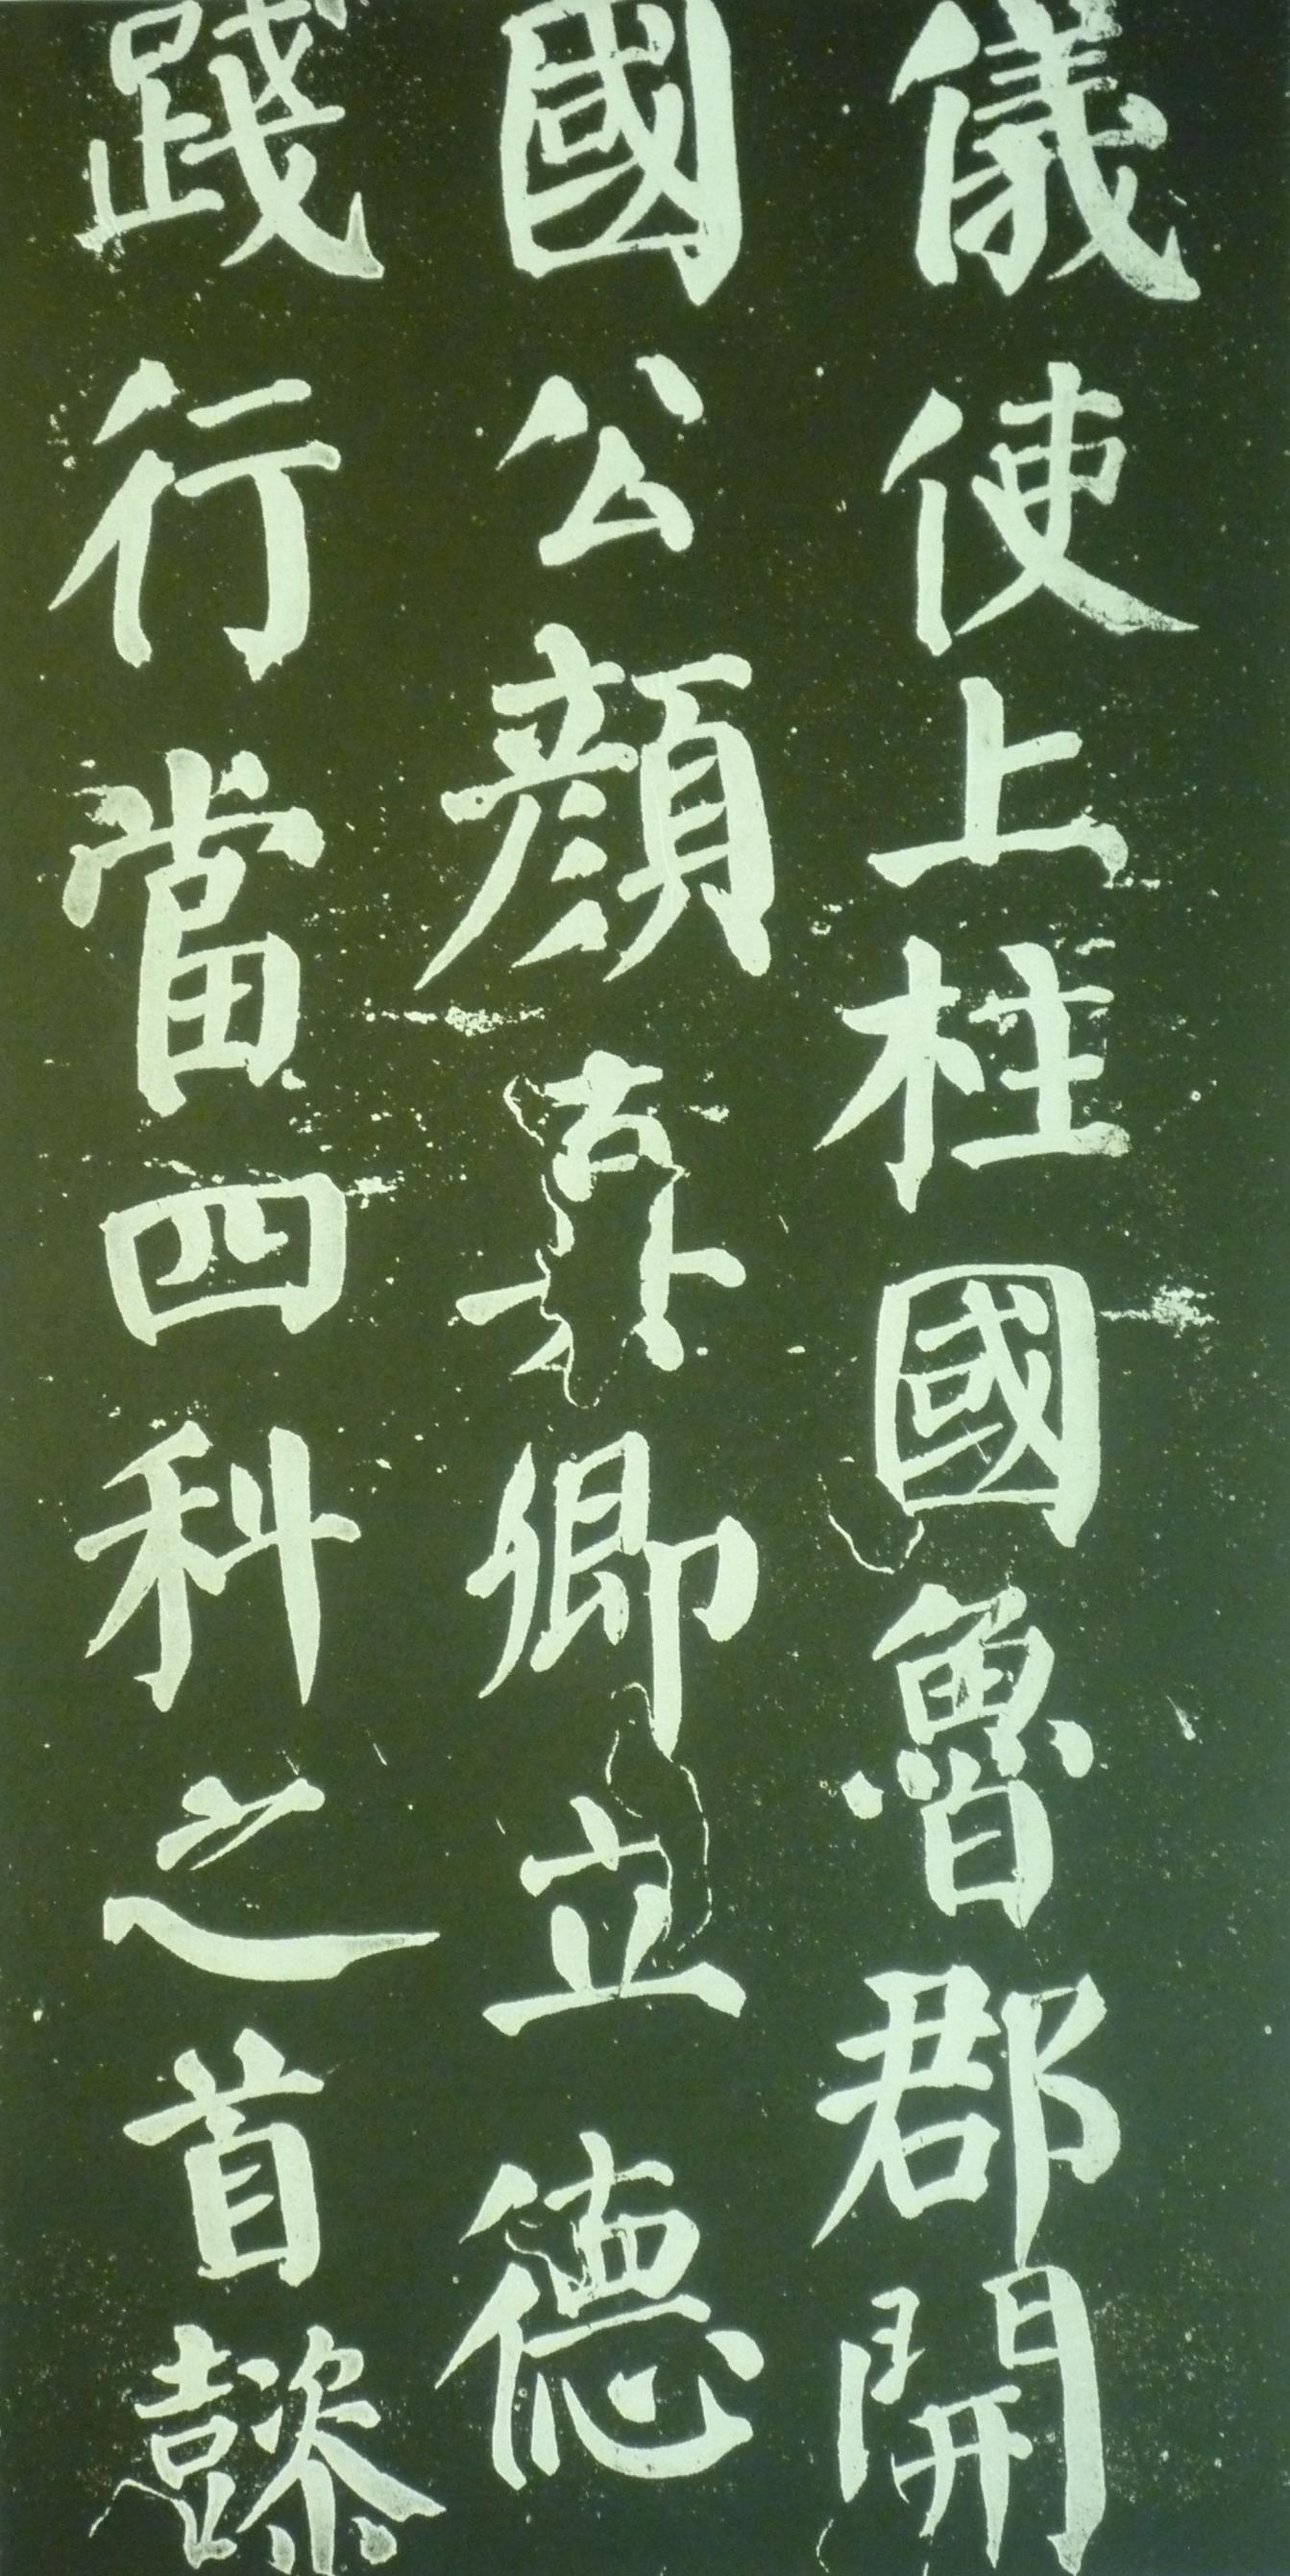 儀使上柱國魯郡開
國公顏真卿立德
踐行當四科之首懿